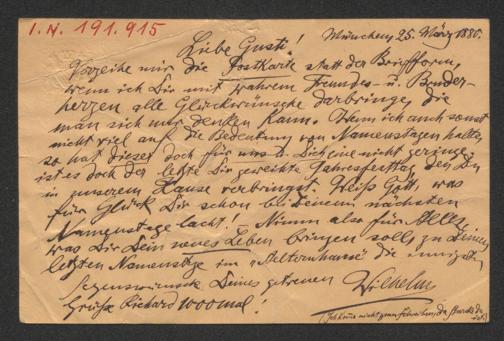 I. N. 191.915
München, 25. März 1880.
Liebe Gusti!
Verzeihe mir die Postkarte statt der Briefform,
wenn ich Dir mit wahrem Freundes- u. Bruder-
herzen alle Glückwünsche darbringe, die
man sich nur denken kann. Wenn ich auch sonst
nicht viel auf die Bedeutung von Namenstagen halte,
so hat dieser doch für uns u. Dich eine nicht geringe,
ist es doch der letzte Dir geweihte Jahresfesttag, den Du
in unserem Hause verbringst. Weiß Gott, was
für Glück Dir schon bei Deinem nächsten
Namenstage lacht! – Nimm also für Alles,
was Dir Dein neues Leben bringen soll, zu Deinem
letzten Namenstage im "Aelternhause" die innigsten
Segenswünsche Deines getreuen Wilhelm
Grüße Richard 1000mal!
(Ich kann nicht schreiben, da